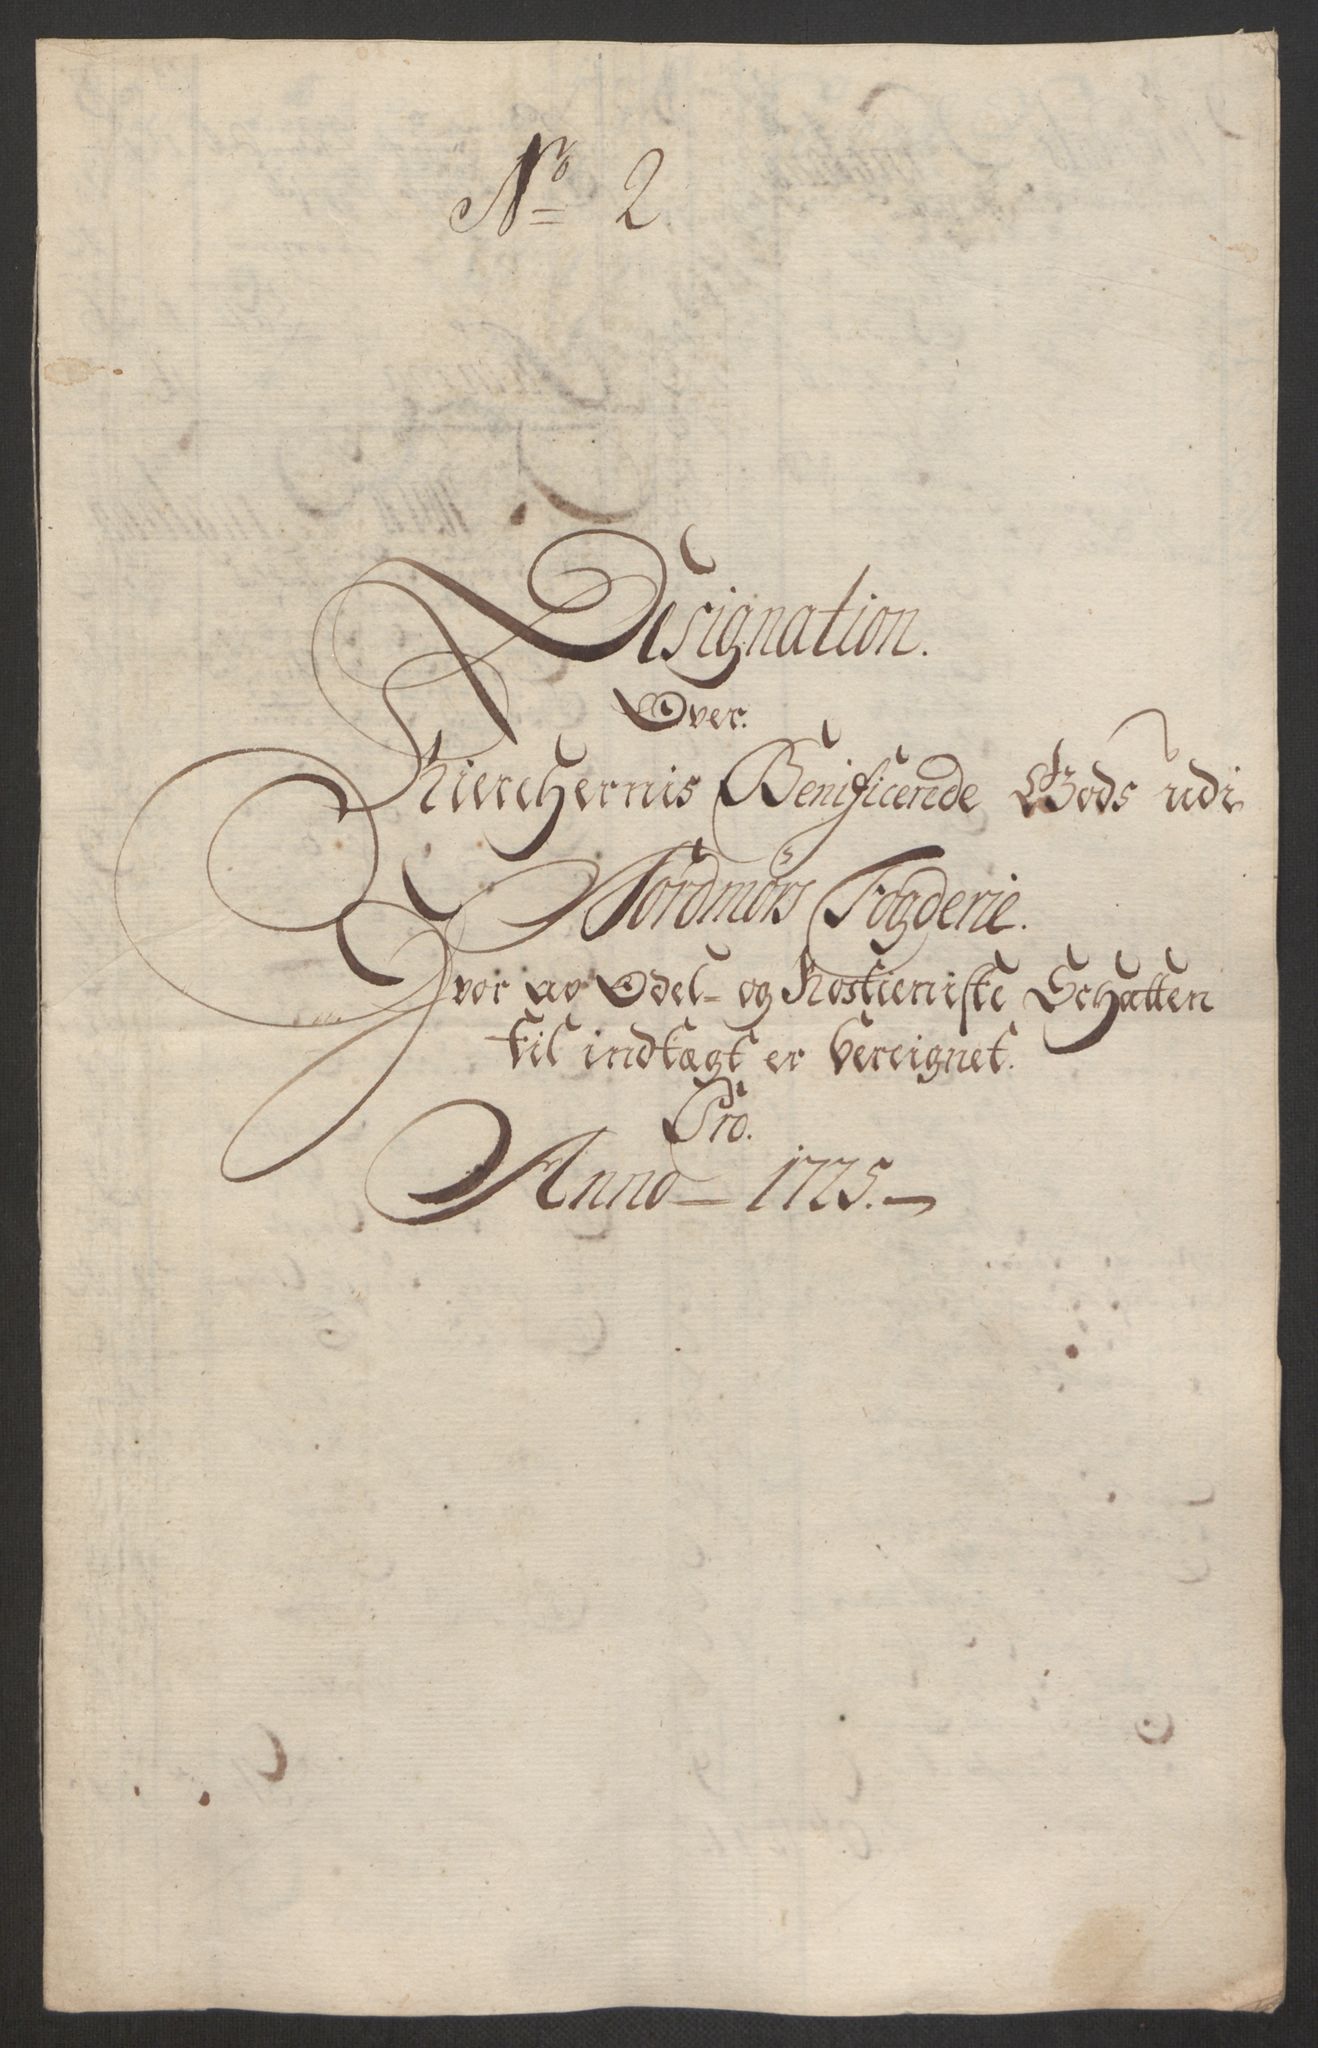 No 2
Designation.
Over.
Kierchernis Benificerede Gods udi
Nordmørs Fogderie.
Hvor av Odel- og Rostieniste Schatten
til indtægt er bereignet.
Pro.
Anno - 1725. -